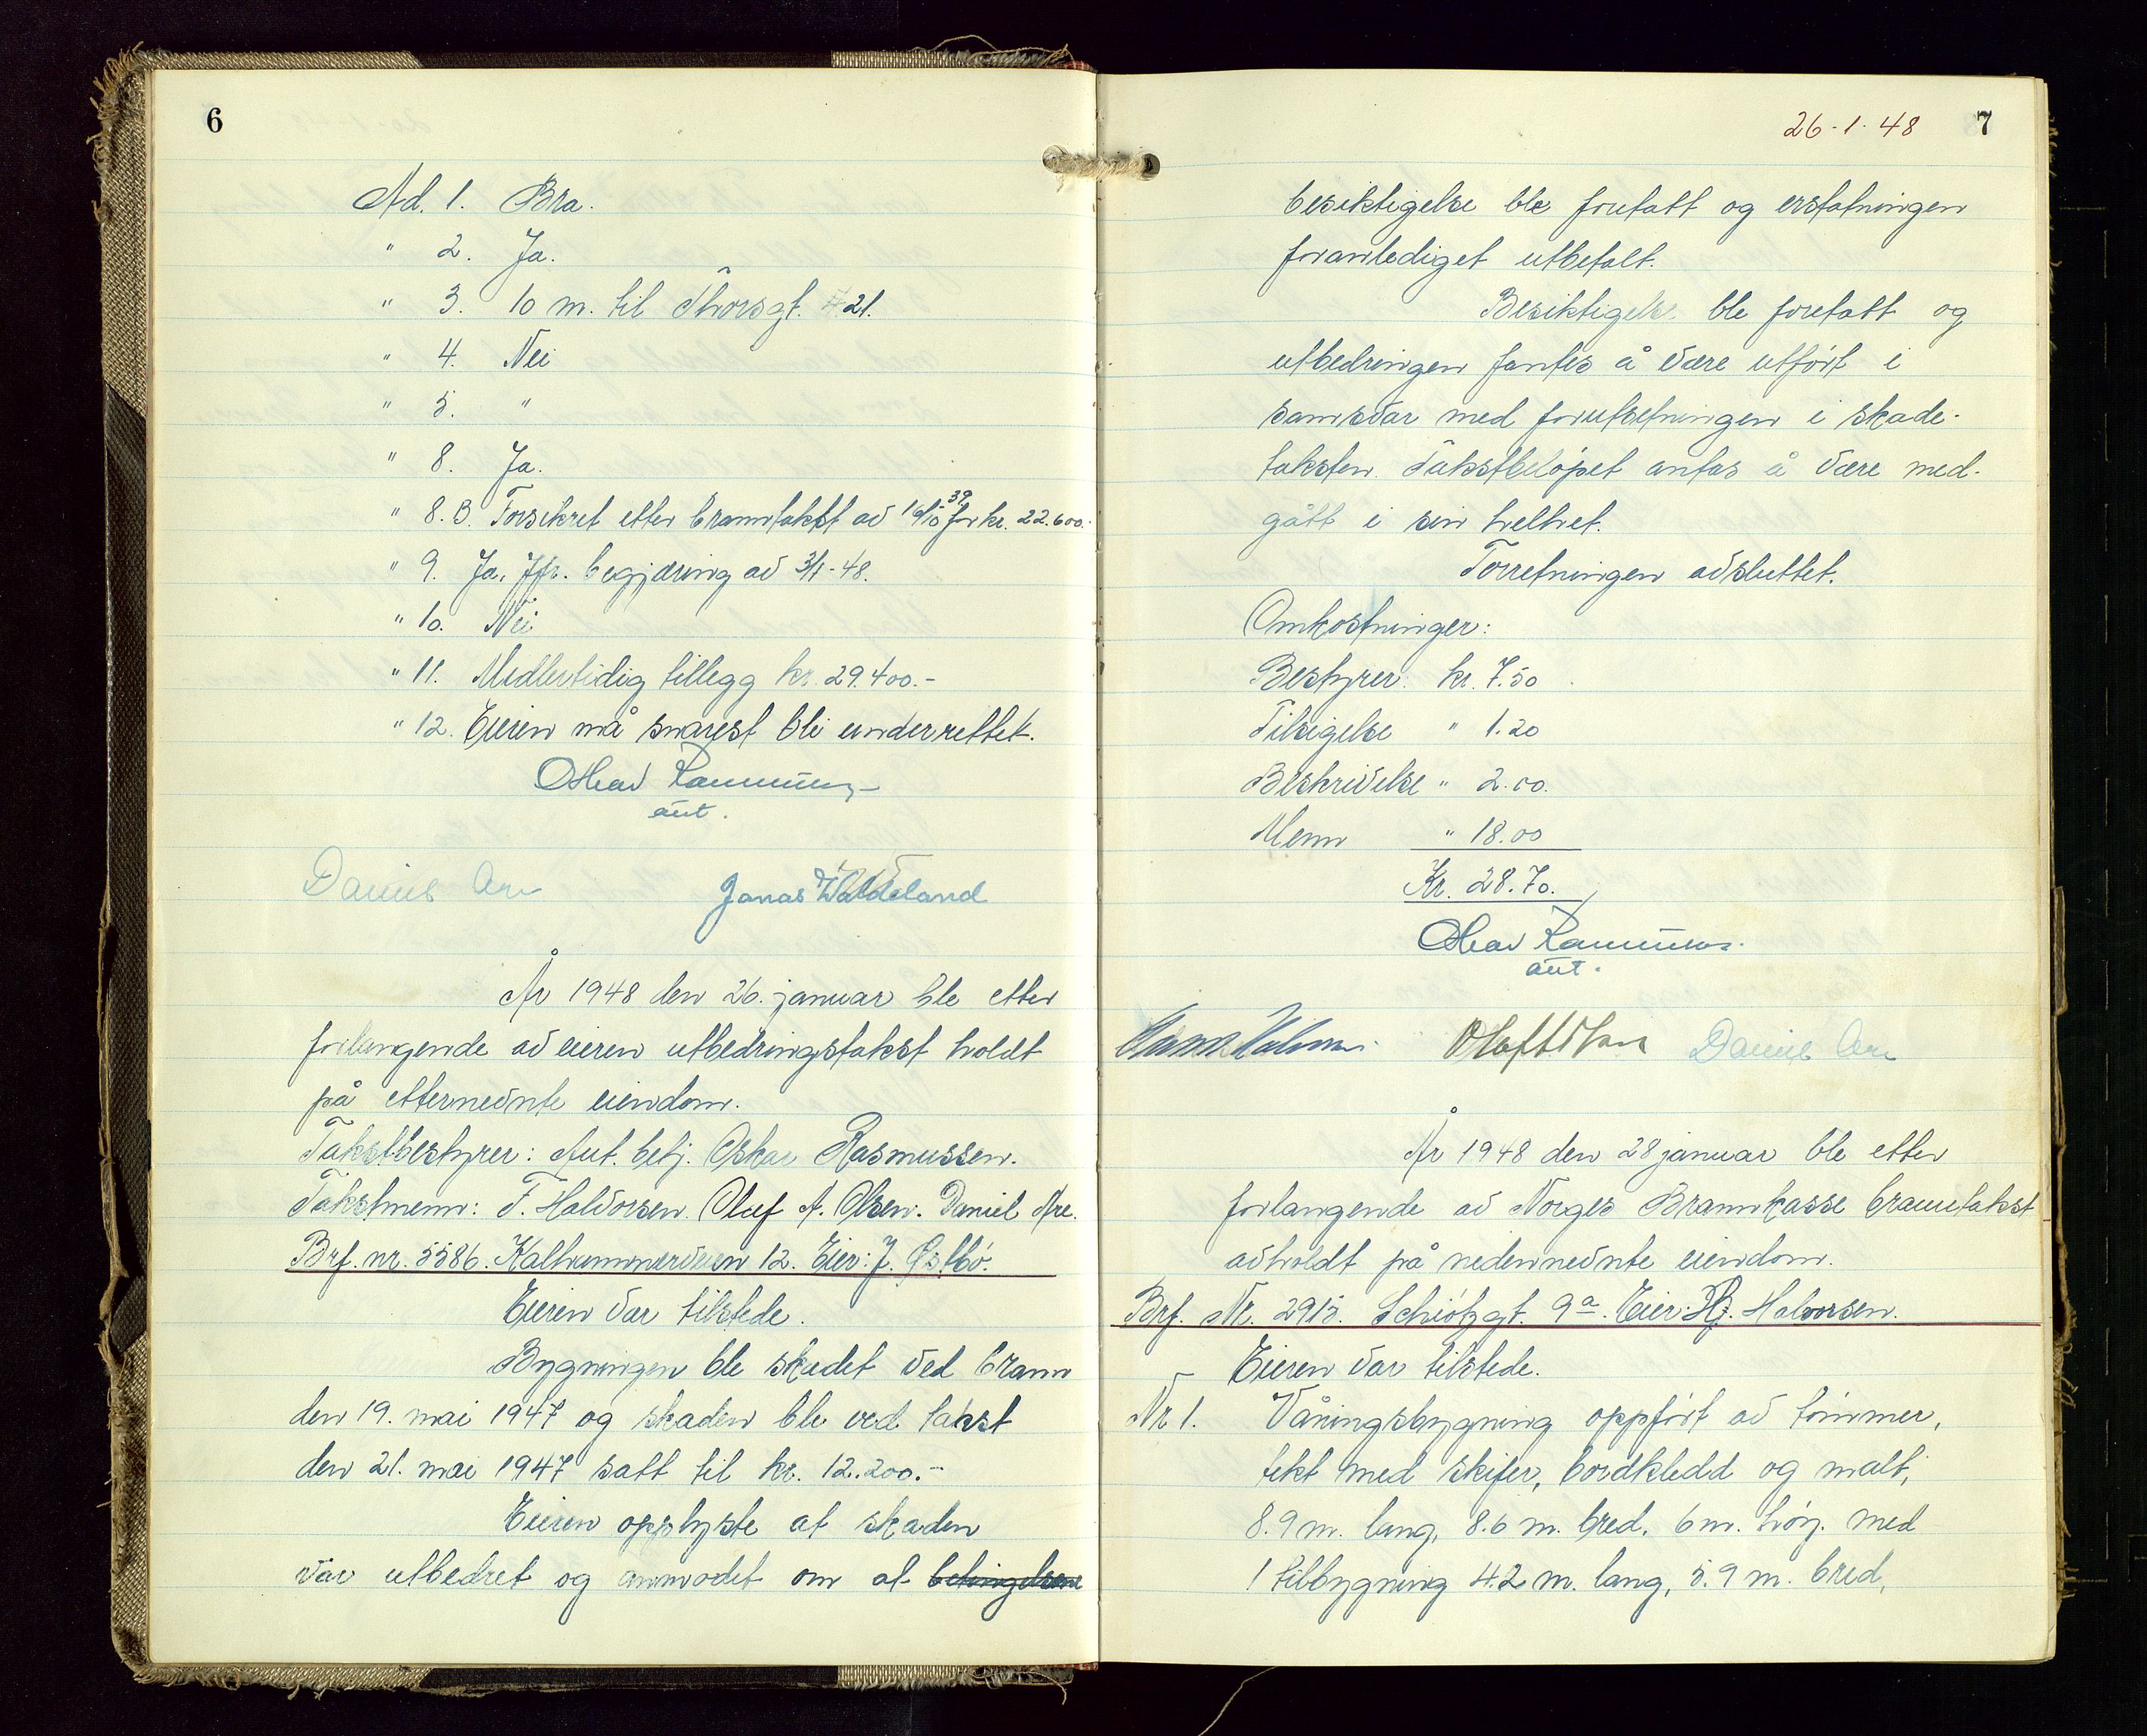 6
Ad. 1. Bra.
" 2. Ja.
" 3. 10 m. til Thorsgt. 21.
" 4. Nei
" 5. "
" 8. Ja.
" 8.B. Forsikret etter branntakst av 16/10 39 for kr. 22.600.-
" 9. Ja, Jfr. begjæring av 3/1-48.
" 10. Nei
" 11. Midlertidig tillegg kr. 29.400.-
" 12. Eieren må snarest bli underrettet.
Oskar Rasmussen
aut.
Daniel Are Jonas Waldeland
År 1948 den 26. januar ble etter
forlangende av eieren utbedringstakst holdt
på etternevnte eiendom.
Takstbestyrer: Aut. betj. Oskar Rasmussen.
Takstmenn: F. Halvorsen. Oluf A. Olsen. Daniel Are.
Brf. nr. 5586. Kalhammerveien 12. Eier: J. Østbö.
Eieren var tilstede.
Bygningen ble skadet ved brann
den 19. mai 1947 og skaden ble ved takst
den 21. mai 1947 satt til kr. 12.200.-
Eieren opplyste at skaden
var utbedret og anmodet om at betingelsene
26-1-48 7
besiktigelse ble foretatt og erstatningen
foranlediget utbetalt.
Besiktigelse ble foretatt og
utbedringen fantes å være utfört i
samsvar med forutsetningen i skade-
taksten. Takstbelöpet antas å være med-
gått i sin helhet.
Forretningen avsluttet.
Omkostninger:
Bestyrer kr. 7.50
Tilsigelse " 1.20
Beskrivelse " 2.00.
Menn " 18.00
Kr. 28.70.
Oskar Rasmussen.
aut.
Olaf A Olsen Daniel Are
År 1948 den 28 januar ble etter
forlangende av Norges Brannkasse branntakst
avholdt på nedennevnte eiendom.
Brf. Nr. 2915. Schiötzgt. 9a. Eier: Hj. Halvorsen.
Eieren var tilstede.
Nr 1. Våningsbygning oppfört av tömmer,
tekt med skifer, bordkledd og malt,
8.9 m. lang, 8.6 m. bred, 6 m. höy. med
1 tilbygning 4.2 m. lang, 5.9 m. bred,